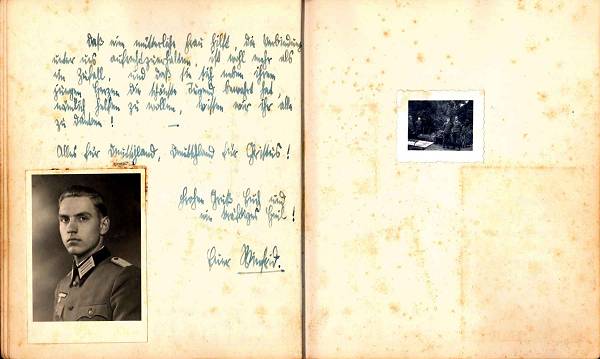 Daß eine mütterliche Frau hilft, die Verbindung
unter uns aufrechtzuerhalten, ist wohl mehr als
ein Zufall, und daß sie sich neben ihrem
jungen Herzen die Tugend bewahrt hat,
helfen zu wollen, wissen wir ihr alle
zu danken! —
Alles für Deutschland, Deutschland für Christus!
Frohen Gruß Euch und
ein kräftiges Heil!
Euer